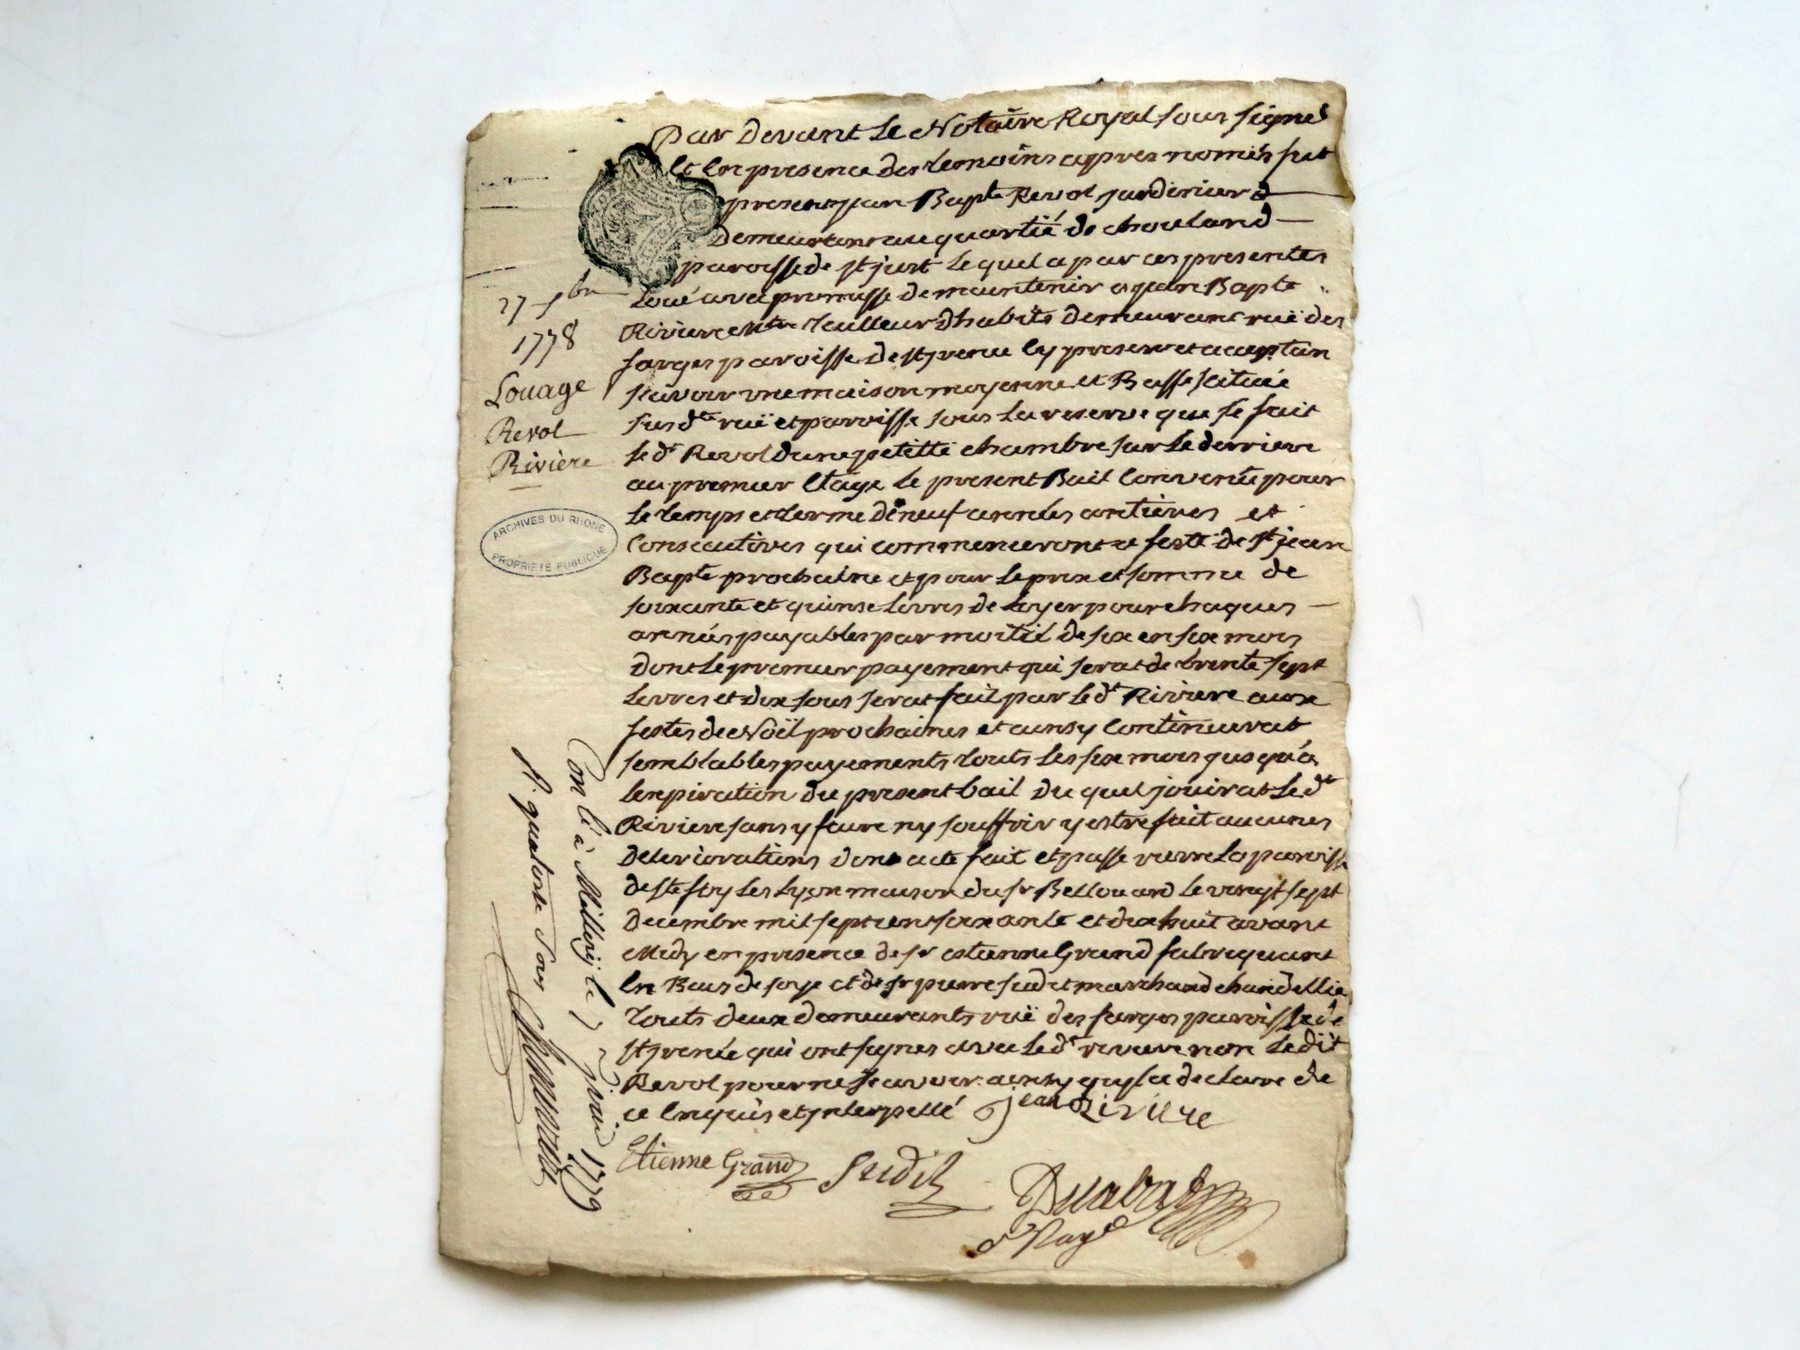 Par devant Le Notaire Royal sous signé
Et En presence des temoins apres només fut
present jean Bapte Revol jardinier
demeurant au quartié de chouland
paroisse de st just Lequel a par ces presentes
Loué avec promesse de maintenir a jean Bapte
Riviere mtre Tailleur dhabits demeurant ruë des
farges paroisse de st irenee Cy present et acceptan
scavoir une maison moyenne et Basse scituée
susdte ruë et paroisse sous La reserve que se fait
Le dt Revol dune petitte chambre sur Le derriere
au premier Etage Le present Bail Convenu pour
Le temps et terme de neuf années antieres et
Consecutives qui commenceront a feste de st jean
Bapte prochaine et pour Le prix et somme de
soixante et quinse Livres de Loyer pour chaques
années payables par moitié de six en six mois
dont Le premier payement qui serat de trente sept
Livres et dix sous serat fait par Le dt Riviere aux
festes de Noël prochaines et ainsy Continuerat
semblables payements touts Les six mois jusqu'a
Lexpiration du present bail du quel jouirat Le dt
Riviere sans y faire ny souffrir y estre fait aucunes
deteriorations dont acte fait et passe riere La paroisse
de ste foy Les Lyon maison du sr Bellouard Le vingt sept
decembre mil sept cent soixante et dix huit avant
Midy en presence de sr estienne Grand fabriquant
En Bas de soye et de sr pierre sudit marchand chandellie
touts deux demeurants ruë des farges paroisse de
st irenée qui ont signes avec Le dt riviere non Le dit
Revol pour ne scavoir ainsy quil a declare de
ce Enquis et jnterpellé jean Riviere
Etienne Grand Sudit
Duabad
Nre Roy
27 xbre
1778
Louage
Revol
Rivière
ARCHIVES DU RHONE
PROPRIETE PUBLIQUE
Con lé à Millery le juin 1779
R. quatorze sous